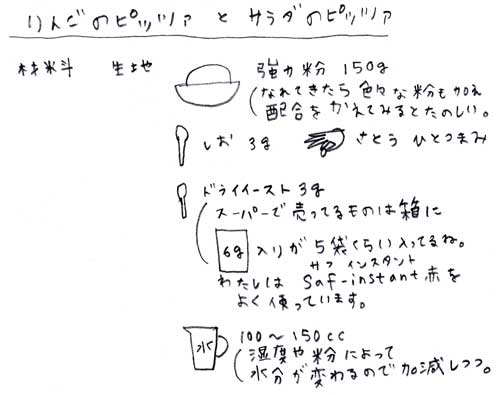 りんごのピッツァ と サラダのピッツァ
材料 生地
強力粉 150g
なれてきたら 色々な粉も加え
配合を かえてみるとたのしい。
しお 3g さとう ひとつまみ
ドライイースト 3g
スーパーで 売ってるものは箱に
6g 入りが 5袋くらい入ってるね。
サフ インスタント
わたしは Saf-instant 赤を
よく使っています。
水 100〜150cc
湿度や粉によって
水分が変わるので 加減しつつ。